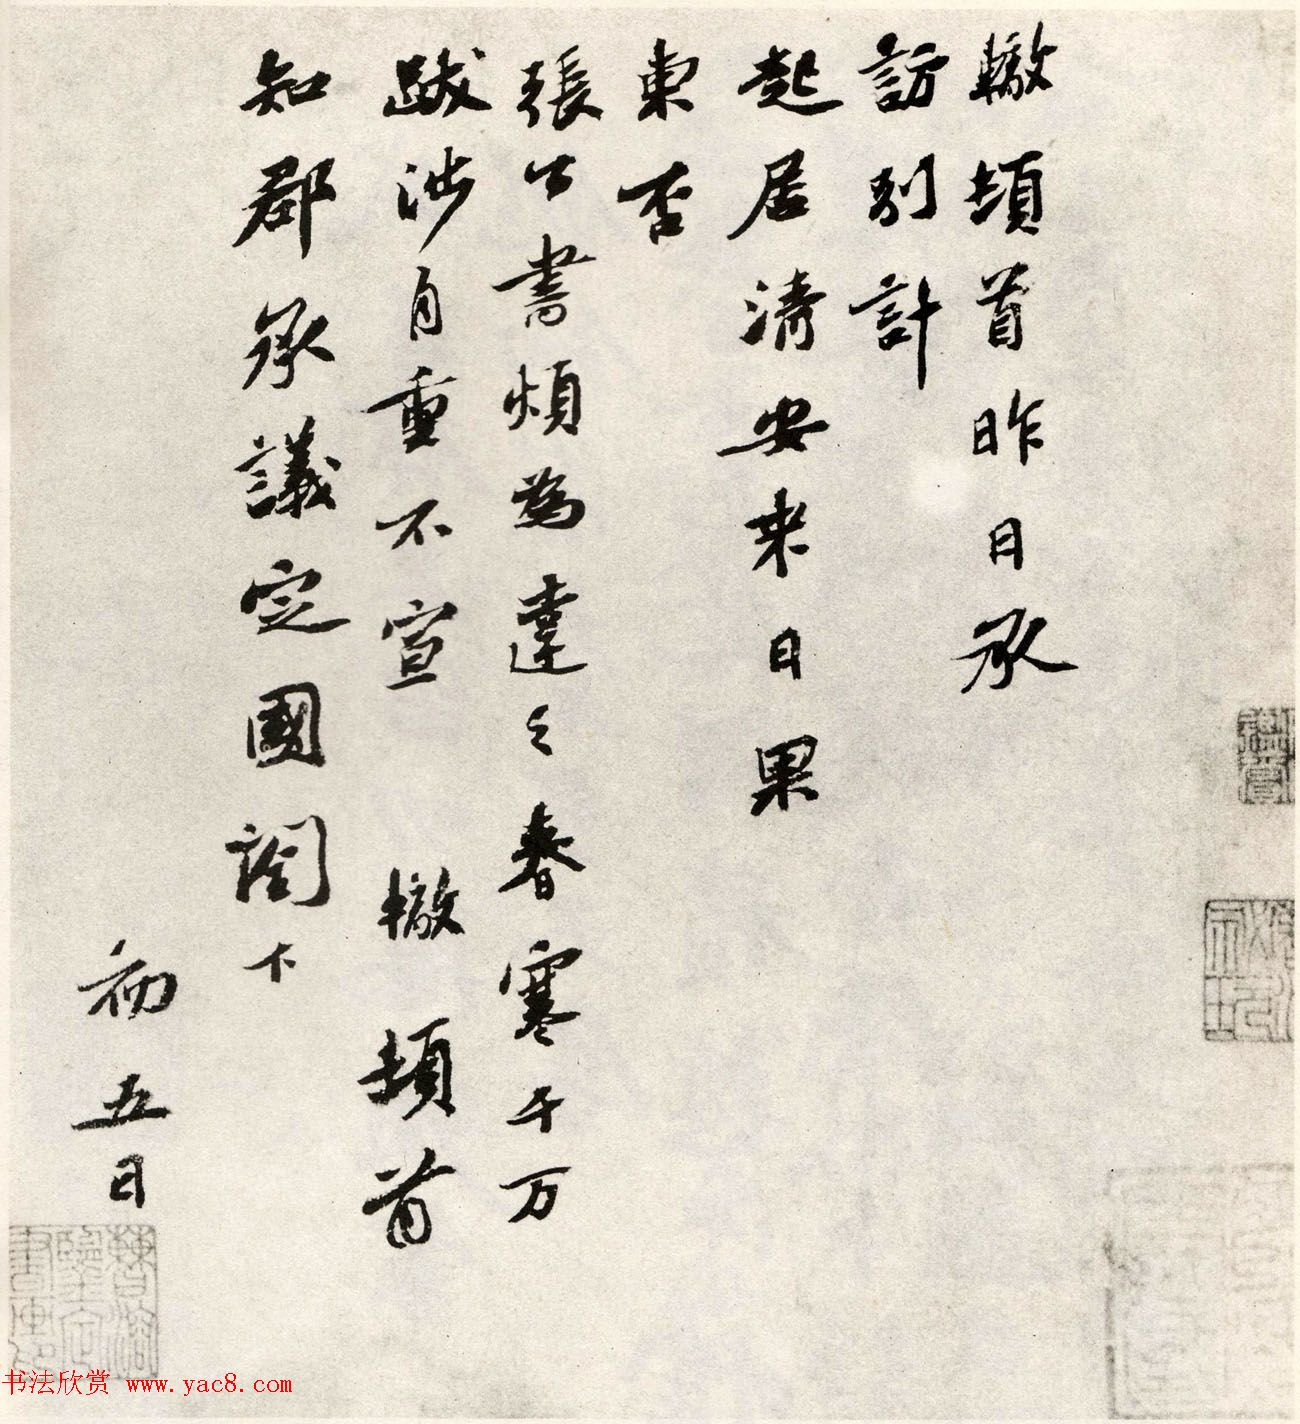 轍頓首昨日承
訪別計
起居清安來日果
東否
張公書煩為達之春寒千万
跋涉自重不宣 轍頓首
知郡承議定國閣下
初五日
书法欣赏 www.yac8.com